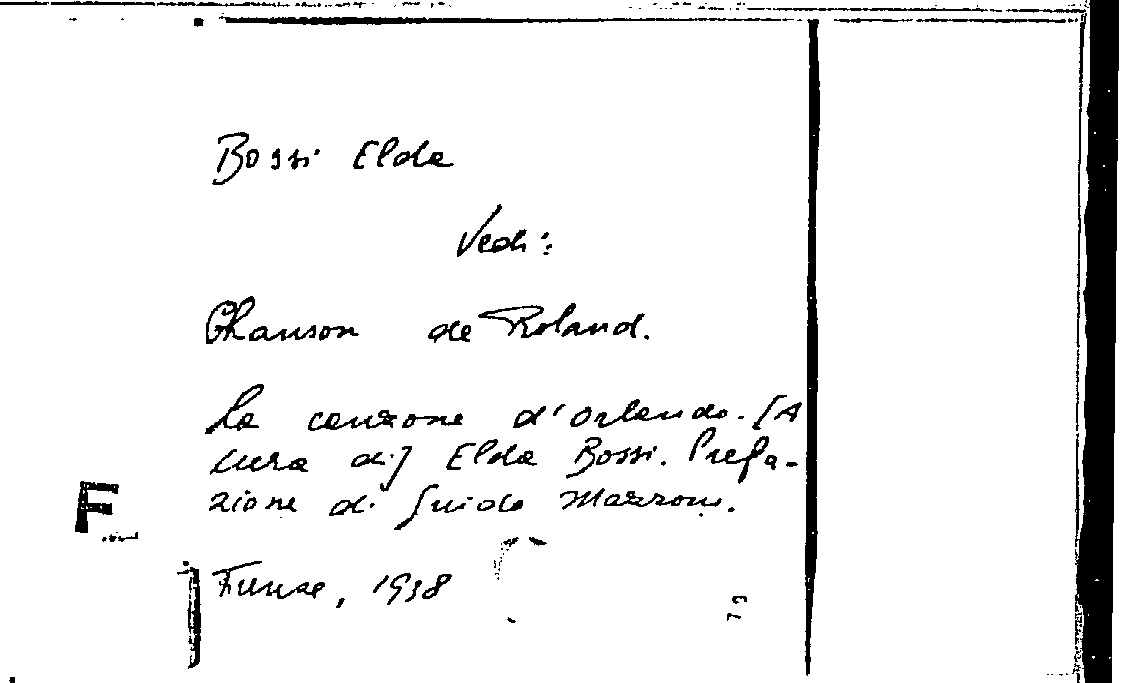 Bossi Elda
Vedi:
Chanson de Roland.
La canzone d'Orlando. [A
cura di] Elda Bossi. Prefa-
zione di Guido Mazzoni.
F
Firenze, 1938